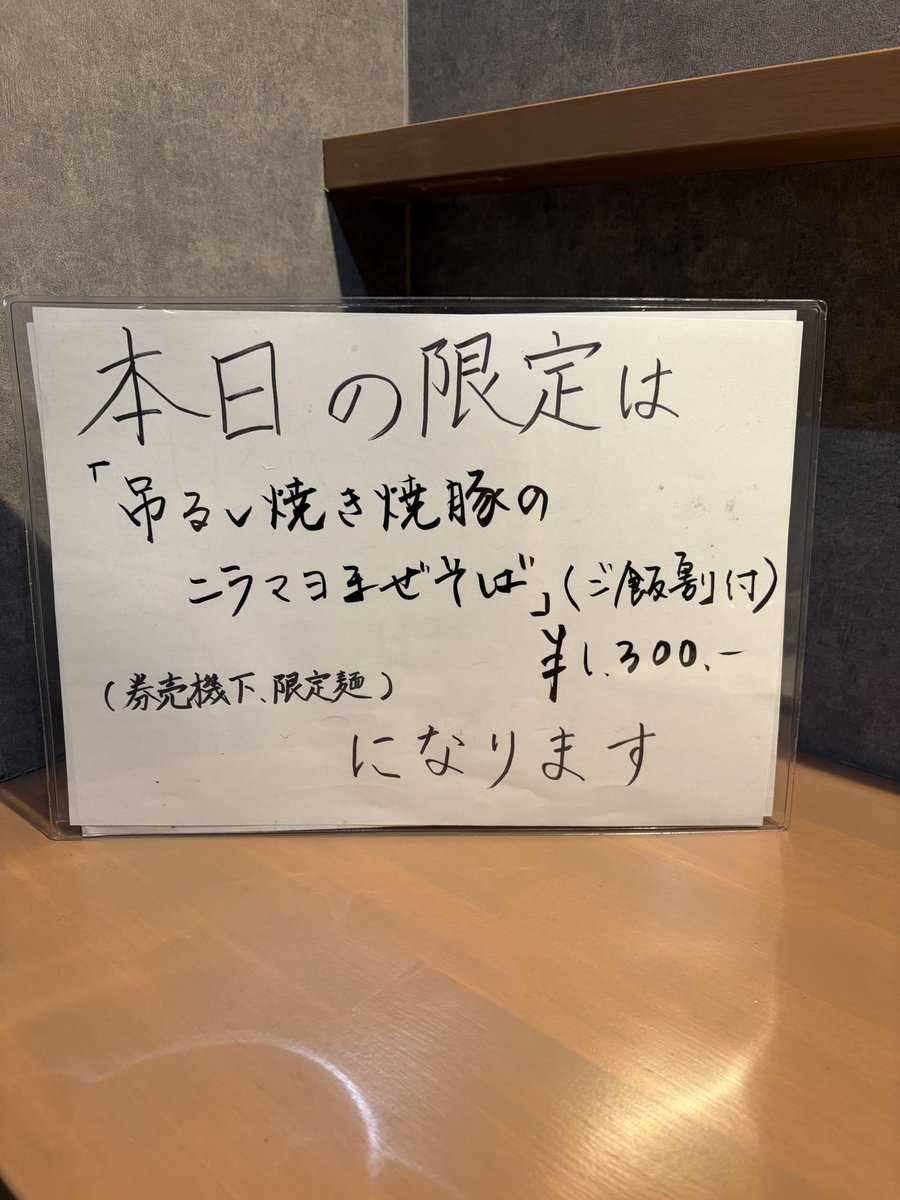 本日の限定は
「吊るし焼き焼豚の
ニラマヨまぜそば」(ご飯割付)
¥1,300.-
(券売機下、限定麺)
になります